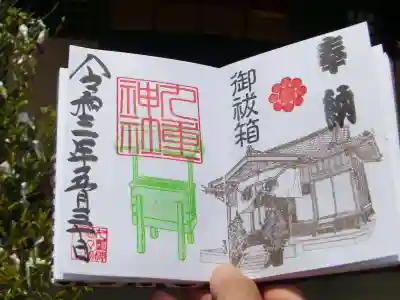 奉納
御祓箱
九重
神社
令和三年五月三日